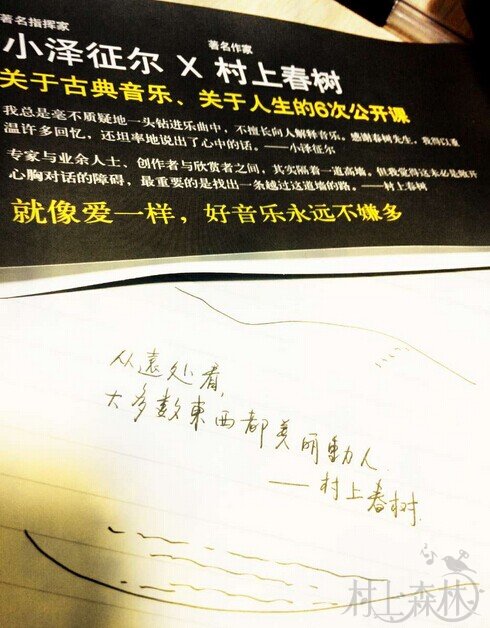 著名指挥家
小泽征尔 X 著名作家 村上春树
关于古典音乐、关于人生的6次公开课
我总是毫不质疑地一头钻进乐曲中，不擅长向人解释音乐。感谢春树先生，我得以重
温许多回忆，还坦率地说出了心中的话。——小泽征尔
专家与业余人士、创作者与欣赏者之间，其实隔着一道高墙。但我觉得这未必是敞开
心胸对话的障碍，最重要的是找出一条越过这道墙的路。——村上春树
就像爱一样，好音乐永远不嫌多
从遠处看,
大多数東西都美丽動人.
——村上春树.
村上森林